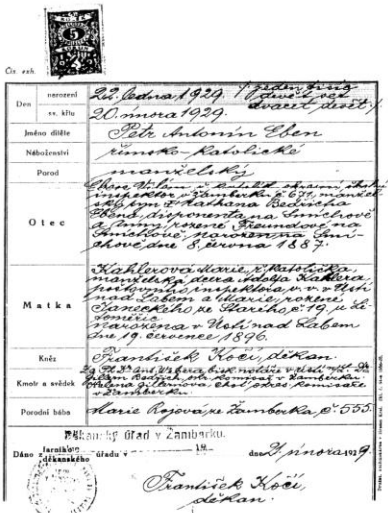 5
Čís. exh.
Den
narození
22. ledna 1929 / jeden tisíc
devět set
sv. křtu
20. února 1929. dvacet devět /
Jméno dítěte
Petr Antonín Eben
Náboženství
římsko-katolické
Porod
manželský
Otec
Eben Vilém, ř. katolík, okresní školní
inspektor v Žamberku č. 31, manžel-
ský syn Nathana Bedřicha
Ebena, disponenta na Smíchově
a Anny, rozené Freundové na
Smíchově, narozen na Smí-
chově dne 8. června 1887.
Matka
Kahlerová Marie, ř. katolička,
manželská dcera Adolfa Kahlera,
poštovního inspektora v. v. v Ústí
nad Labem a Marie, rozené
Janeckého ze Starého, č. 19, u Li-
toměřic
narozena v Ústí nad Labem
dne 19. července 1896.
Kněz
František Kočí, děkan
Kmotr a svědek
Helena Gillarnova, choť okres. komisaře
v Žamberku.
Porodní bába
Marie Rojová, ze Žamberka, č. 555.
Děkanský úřad v Žamberku.
Dáno z farního děkanského úřadu v 19 dne 21. února 1929
František Kočí,
děkan.